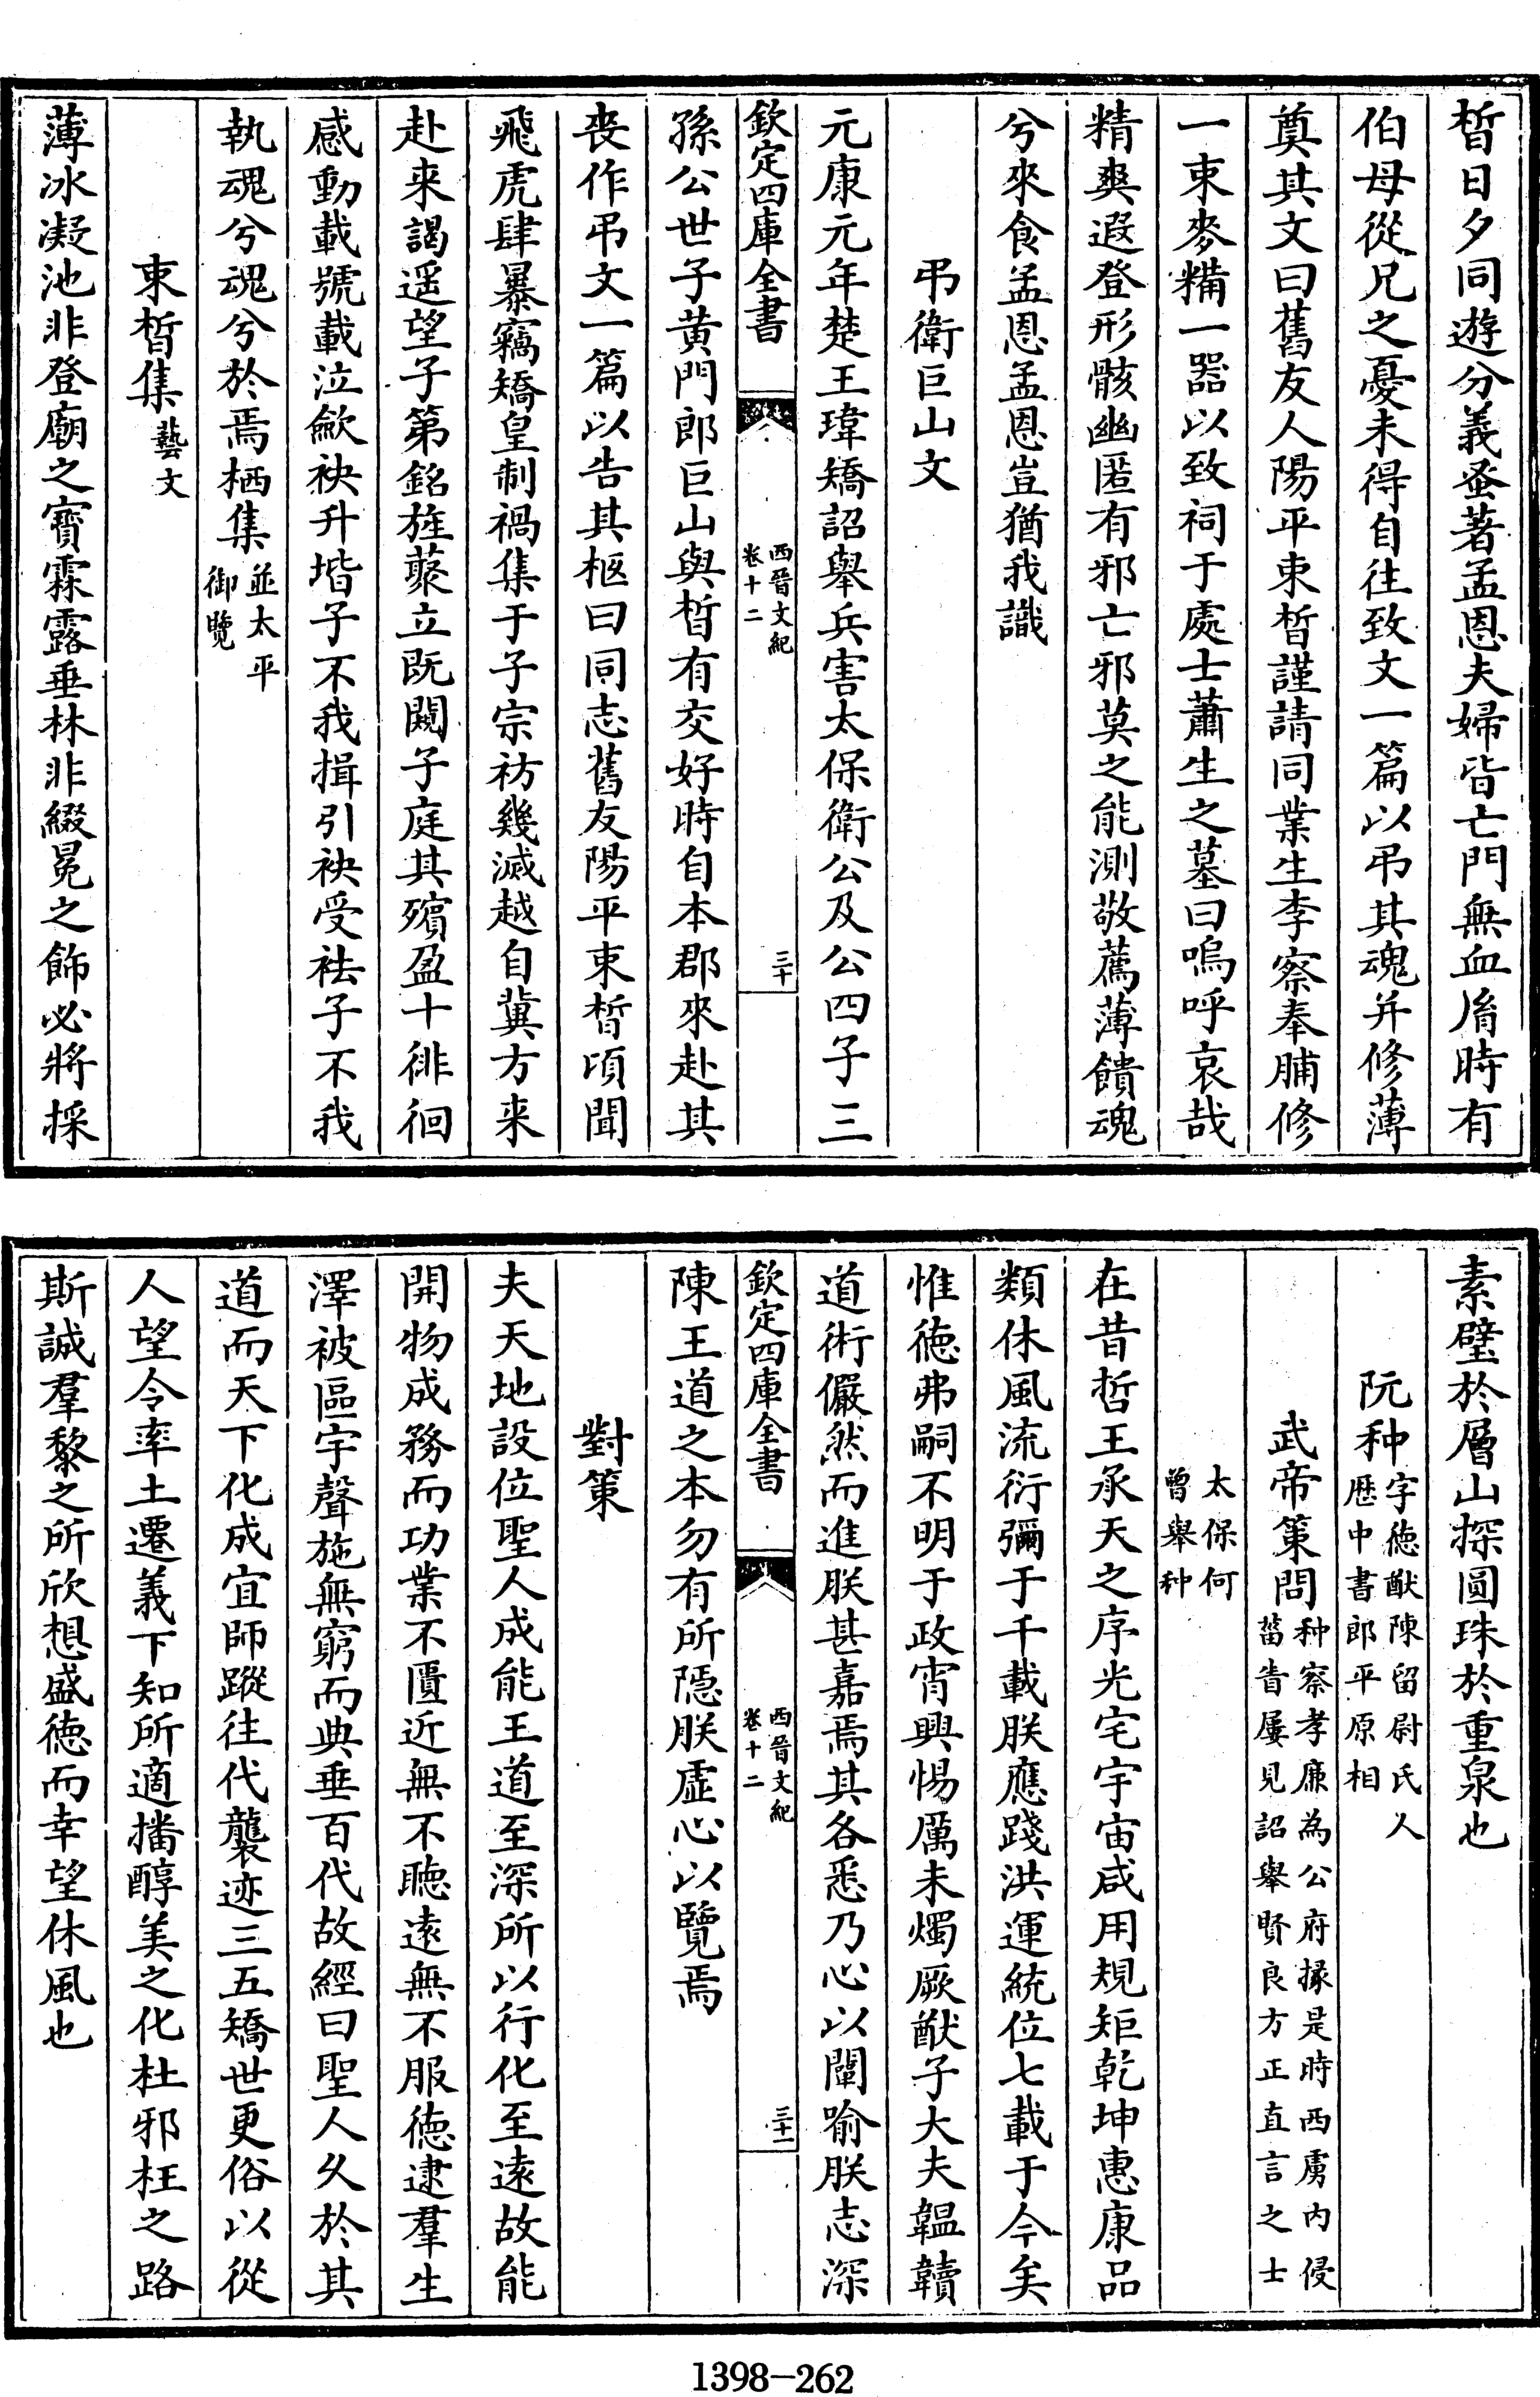 晳日夕同遊分義蚤著孟恩夫婦皆亡門無血胤時有
伯母從兄之憂未得自往致文一篇以弔其魂并修薄
奠其文曰舊友人陽平束晳謹請同業生李察奉脯修
一束麥糒一器以致祠于處士蕭生之墓曰嗚呼哀哉
精爽遐登形骸幽匿有邪亡邪莫之能測敬薦薄饋魂
兮來食孟恩孟恩豈猶我識
弔衛巨山文
元康元年楚王瑋矯詔舉兵害太保衛公及公四子三
欽定四庫全書
西晉文紀
卷十二
三十
孫公世子黃門郎巨山與晳有交好時自本郡來赴其
喪作弔文一篇以告其柩曰同志舊友陽平束晳頃聞
飛虎肆暴竊矯皇制禍集于子宗祊幾滅越自冀方来
赴来謁遥望子第銘旌藂立既闚子庭其殯盈十徘徊
感動載號載泣歛袂升堦子不我揖引袂受袪子不我
執魂兮魂兮於焉栖集並太平
御覽
束晳集藝文
薄冰凝池非登廟之寳霖露垂林非綴冕之飾必將採
素璧於層山探圓珠於重泉也
阮种字徳猷陳留尉氏人
歴中書郎平原相
武帝策問种察孝廉為公府掾是時西虜内侵
菑眚屢見詔舉賢良方正直言之士
太保何
曾舉种
在昔哲王承天之序光宅宇宙咸用規矩乾坤惠康品
類休風流衍彌于千載朕應踐洪運統位七載于今矣
惟徳弗嗣不明于政宵興惕厲未燭厥猷子大夫韞韥
道術儼然而進朕甚嘉焉其各悉乃心以闡喻朕志深
欽定四庫全書
西晉文紀
卷十二
三十一
陳王道之本勿有所隠朕虚心以覽焉
對策
夫天地設位聖人成能王道至深所以行化至逺故能
開物成務而功業不匱近無不聴逺無不服徳逮羣生
澤被區宇聲施無窮而典垂百代故經曰聖人久於其
道而天下化成宜師蹤往代襲迹三五矯世更俗以從
人望令率土遷義下知所適播醇美之化杜邪枉之路
斯誠羣黎之所欣想盛徳而幸望休風也
1398-262